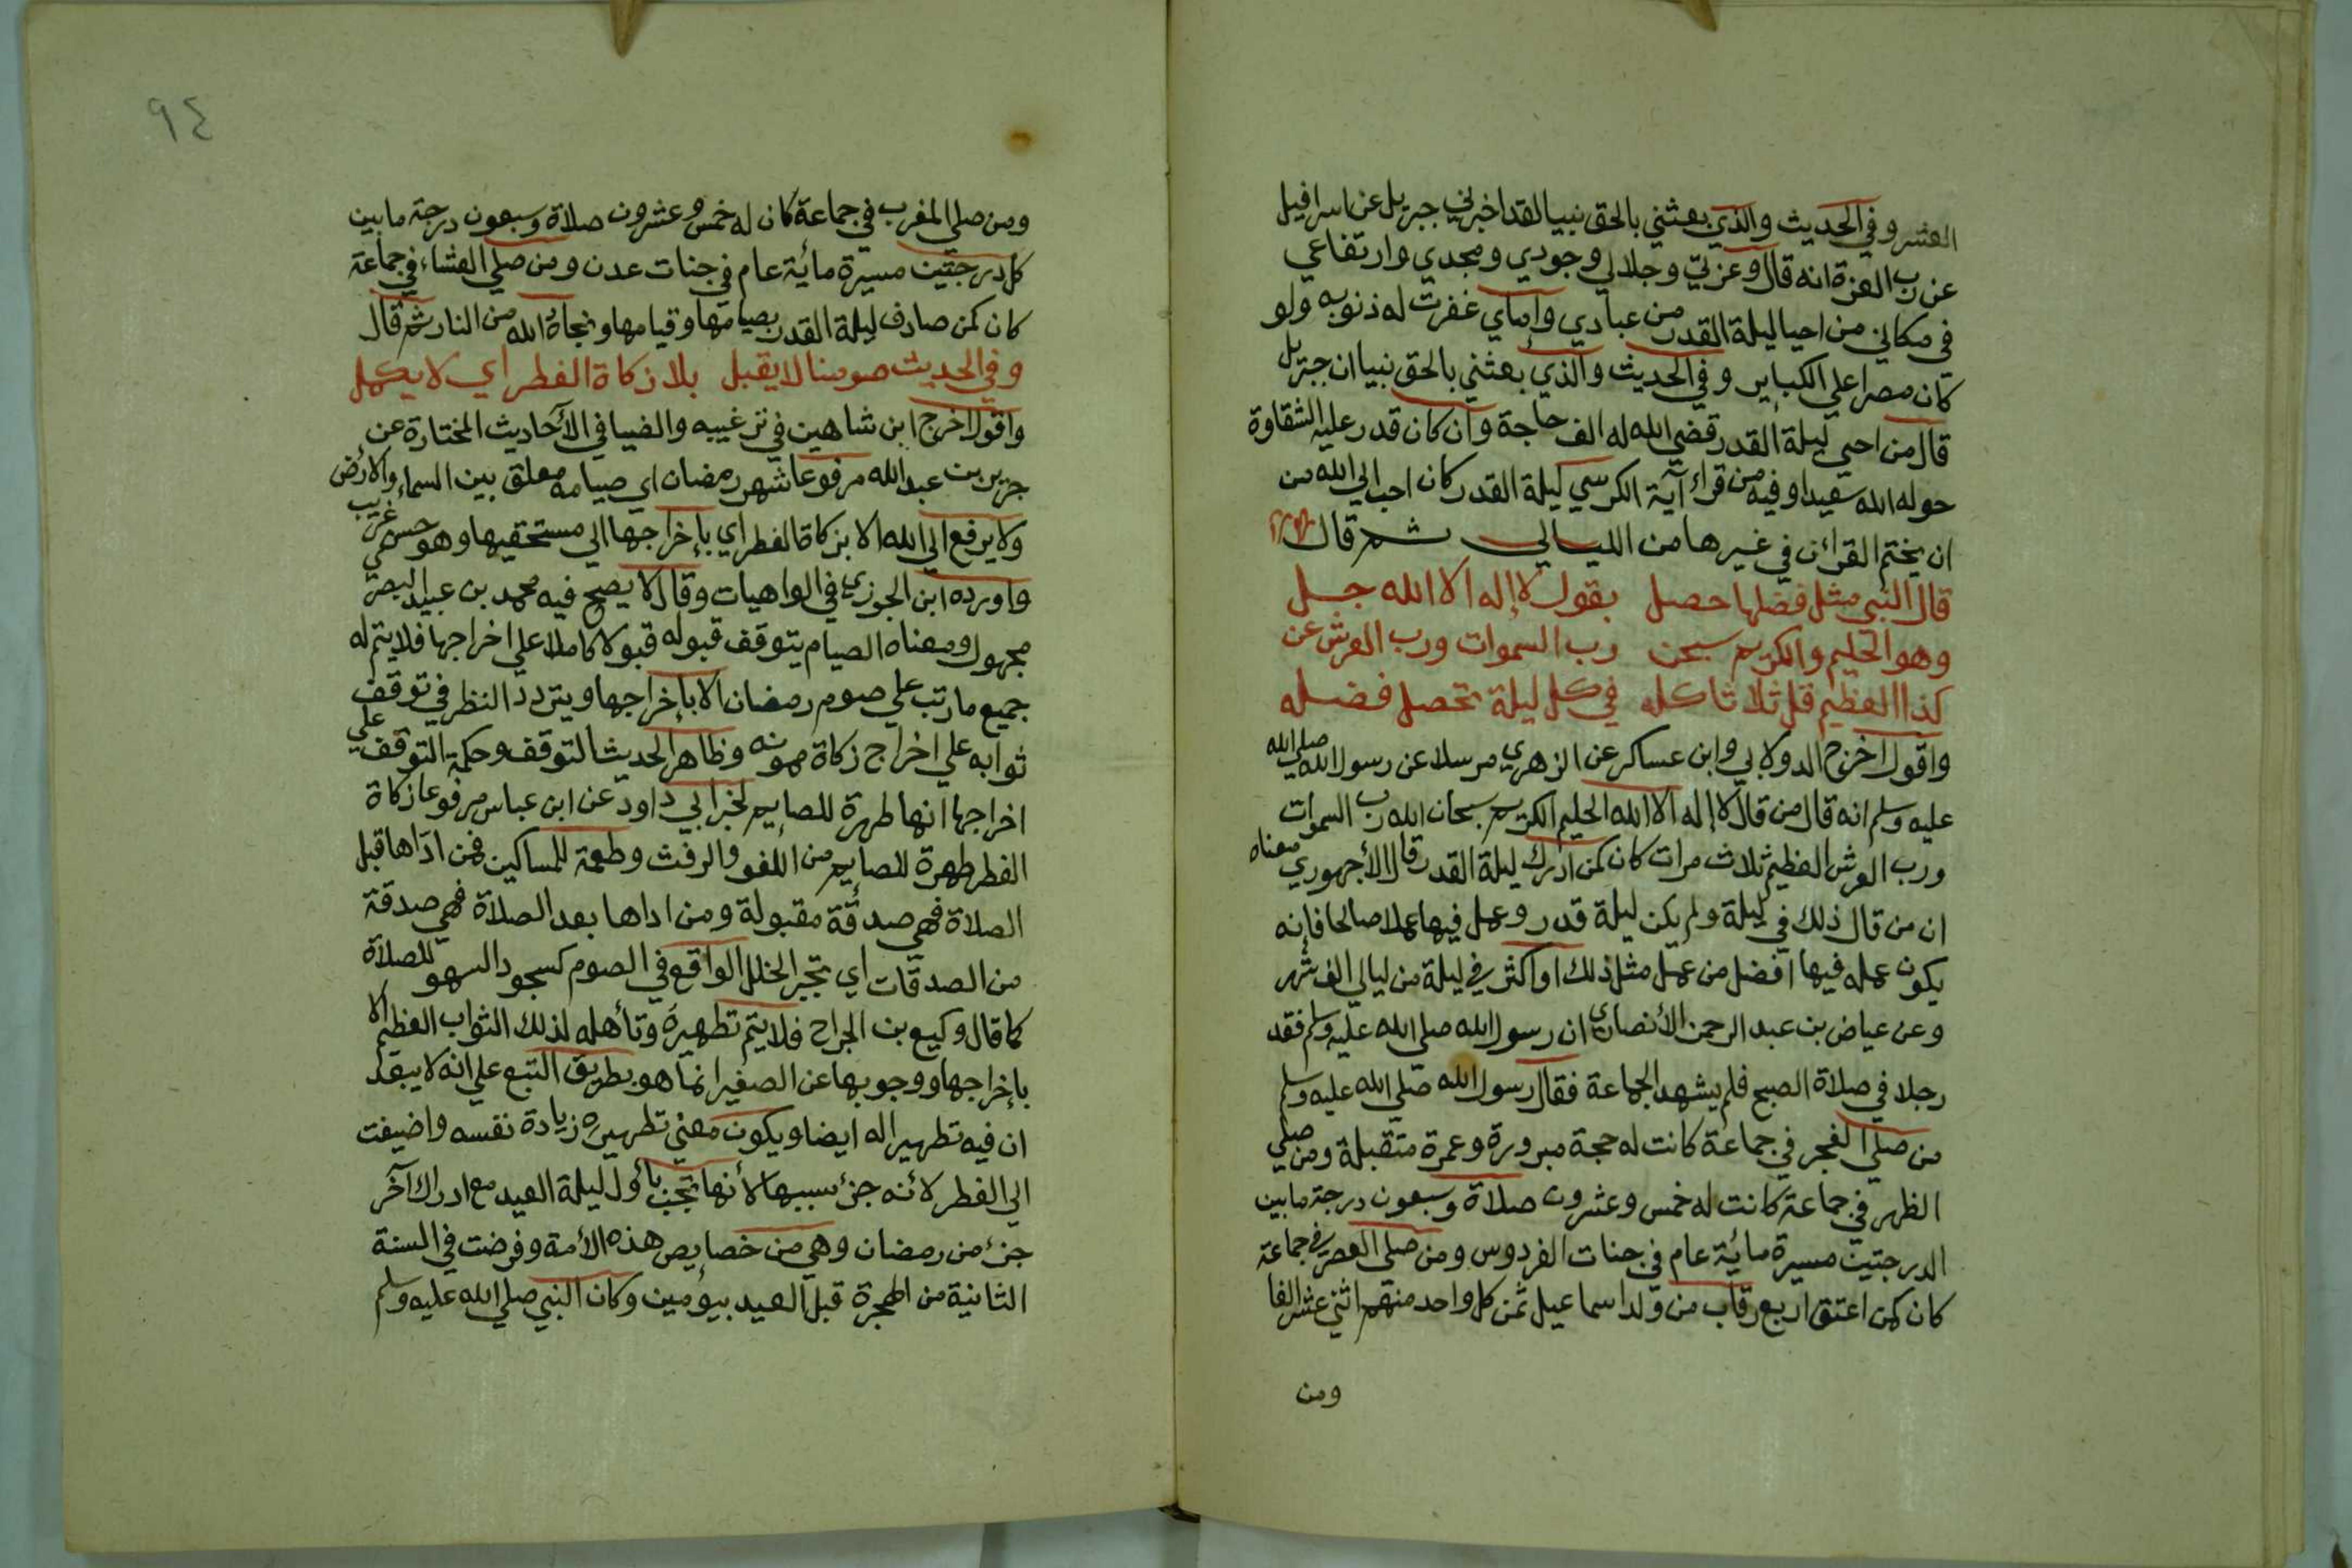 العشر وفي الحديث والذي بعثني بالحق نبيا لقد اخبرني جبريل عن اسرافيل
عن رب العزة انه قال وعزتي وجلالي وجودي ومجدي وارتفاعي
في مكاني من احيا ليلة القدر من عبادي وإماي غفرت له ذنوبه ولو
كان مصرا على الكباير وفي الحديث والذي بعثني بالحق نبيا ان جبريل
قال من احيى ليلة القدر قضى الله له الف حاجة وان كان قدر عليه الشقاوة
حوله الله سعيدا وفيه من قراء آية الكرسي ليلة القدر كان احب الى الله من
ان يختم القرآن في غيرها من الليالي ثم قال
قال النبي مثل فضلها حصل بقول لا إله الا الله جل
وهو الحليم والكريم سبحن رب السموات ورب العرش عن
كذا العظيم قل ثلاثا كله في كل ليلة تحصل فضله
واقول اخرج الدولابي وابن عساكر عن الزهري مرسلا عن رسول الله صلى الله
عليه وسلم انه قال من قال لا إله الا الله الحليم الكريم سبحان الله رب السموات
ورب العرش العظيم ثلاث مرات كان كمن ادرك ليلة القدر قال الأجهوري معناه
ان من قال ذلك في ليلة ولم يكن ليلة قدر وعمل فيها عملا صالحا فإنه
يكون عمله فيها افضل من عمل مثل ذلك او اكثر في ليلة من ليالي الف شهر
وعن عياض بن عبد الرحمن الأنصاري ان رسول الله صلى الله عليه وسلم فقد
رجلا في صلاة الصبح فلم يشهد الجماعة فقال رسول الله صلى الله عليه وسلم
من صلى الفجر في جماعة كانت له حجة مبرورة وعمرة متقبلة ومن صلى
الظهر في جماعة كانت له خمس وعشرون صلاة وسبعون درجة ما بين
الدرجتين مسيرة مائة عام في جنات الفردوس ومن صلى العصر في جماعة
كان كمن اعتق اربع رقاب من ولد اسماعيل ثمن كل واحد منهم اثني عشر الفا
ومن
٩٤
ومن صلى المغرب في جماعة كان له خمس وعشرون صلاة وسبعون درجة ما بين
كل درجتين مسيرة مائة عام في جنات عدن ومن صلى العشاء في جماعة
كان كمن صادف ليلة القدر بصيامها وقيامها ونجاه الله من النار ثم قال
وفي الحديث صومنا لا يقبل بلا زكاة الفطر اي لا يكمل
واقول اخرج ابن شاهين في ترغيبه والضيا في الأحاديث المختارة عن
جرير بن عبد الله مرفوعا شهر رمضان اي صيامه معلق بين السماء والأرض
ولا يرفع الى الله الا بزكاة الفطر اي بإخراجها الى مستحقيها وهو حسن غريب
واورده ابن الجوزي في الواهيات وقال لا يصح فيه محمد بن عبيد البصري
مجهول ومعناه الصيام يتوقف قبوله قبولا كاملا على اخراجها فلا يتم له
جميع ما رتب على صوم رمضان الا بإخراجها ويتردد النظر في توقف
ثوابه على اخراج زكاة ممونه وظاهر الحديث التوقف وحكمة التوقف على
اخراجها انها طهرة للصايم لخبر ابي داود عن ابن عباس مرفوعا زكاة
الفطر طهرة للصايم من اللغو والرفث وطعمة للمساكين فمن اداها قبل
الصلاة فهي صدقة مقبولة ومن اداها بعد الصلاة فهي صدقة
من الصدقات اي تجبر الخلل الواقع في الصوم كسجود السهو للصلاة
كما قال وكيع بن الجراح فلا يتم تطهيره وتأهله لذلك الثواب العظيم الا
بإخراجها ووجوبها عن الصغير انما هو بطريق التبع على انه لا يبعد
ان فيه تطهيرا له ايضا ويكون معنى تطهيره زيادة نفسه واضيفت
الى الفطر لأنه جزء سببها لأنها تجب بأول ليلة العيد مع ادراك آخر
جزء من رمضان وهي من خصايص هذه الأمة وفرضت في السنة
الثانية من الهجرة قبل العيد بيومين وكان النبي صلى الله عليه وسلم